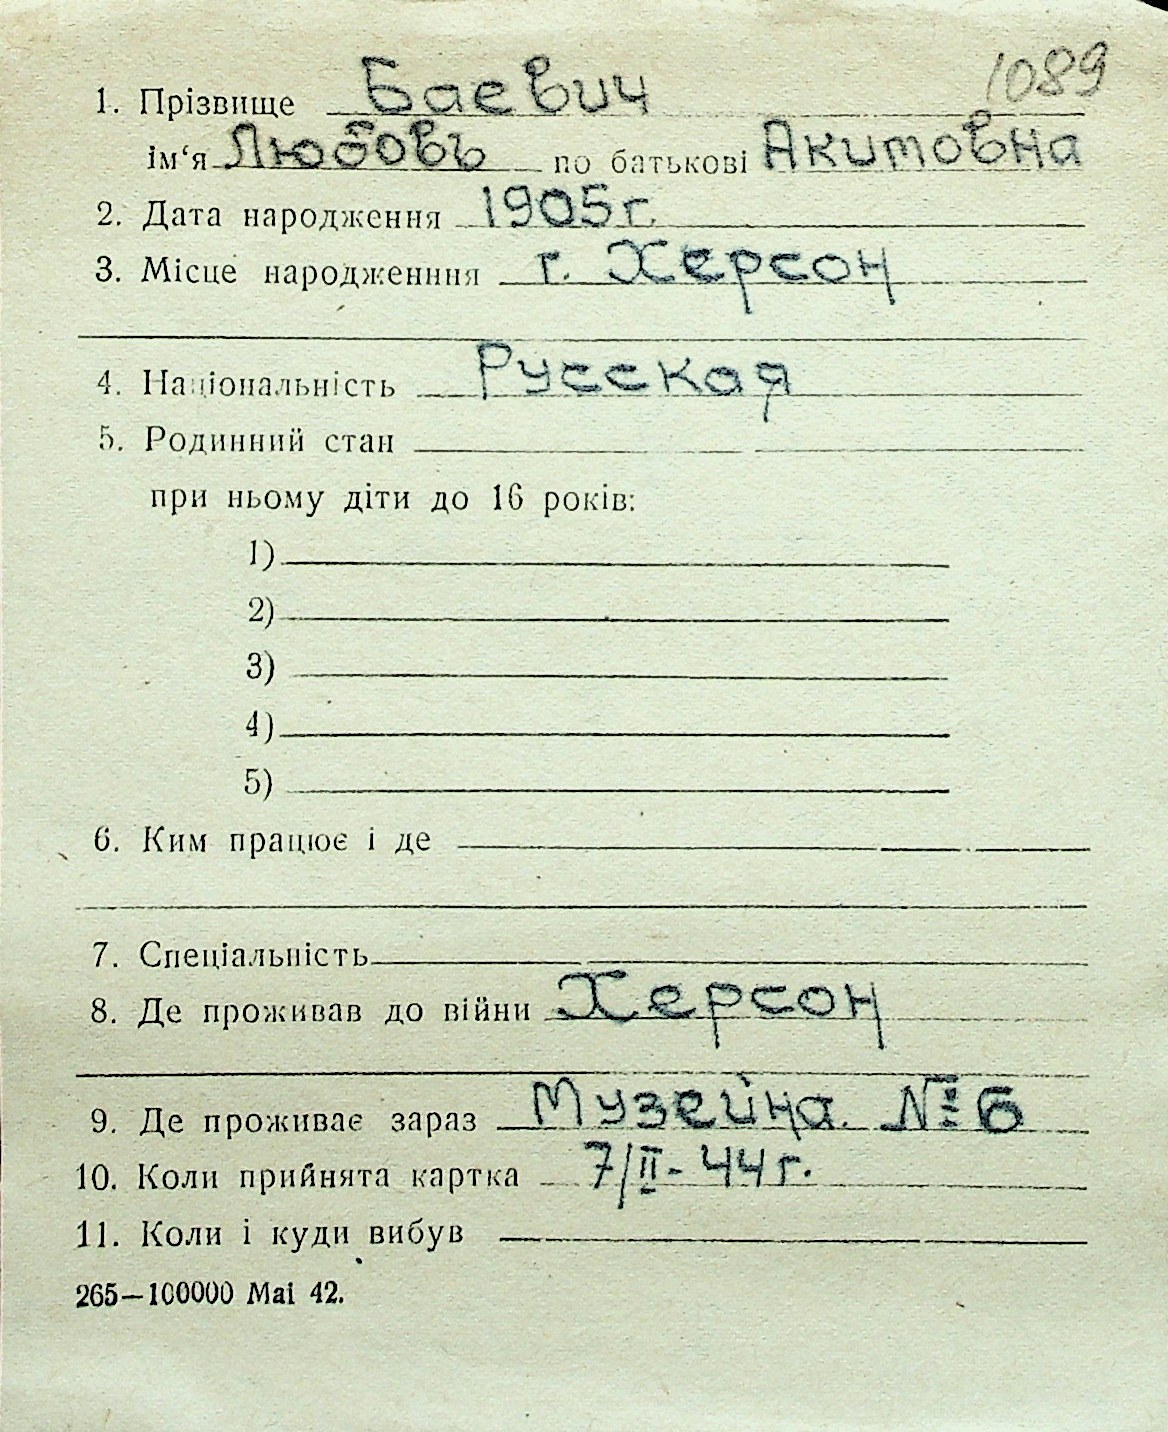 1089
1. Прізвище Баевич
ім‘я Любовъ по батькові Акитовна
2. Дата народження 1905г.
3. Місце народженння г. Херсон
4. Національність Русская
5. Родинний стан
при ньому діти до 16 років:
1)
2)
3)
4)
5)
6. Ким працює і де
7. Спеціальність
8. Де проживав до війни Херсон
9. Де проживає зараз Музейна. № 6
10. Коли прийнята картка 7/II - 44 г.
11. Коли і куди вибув
265—100000 Mai 42.